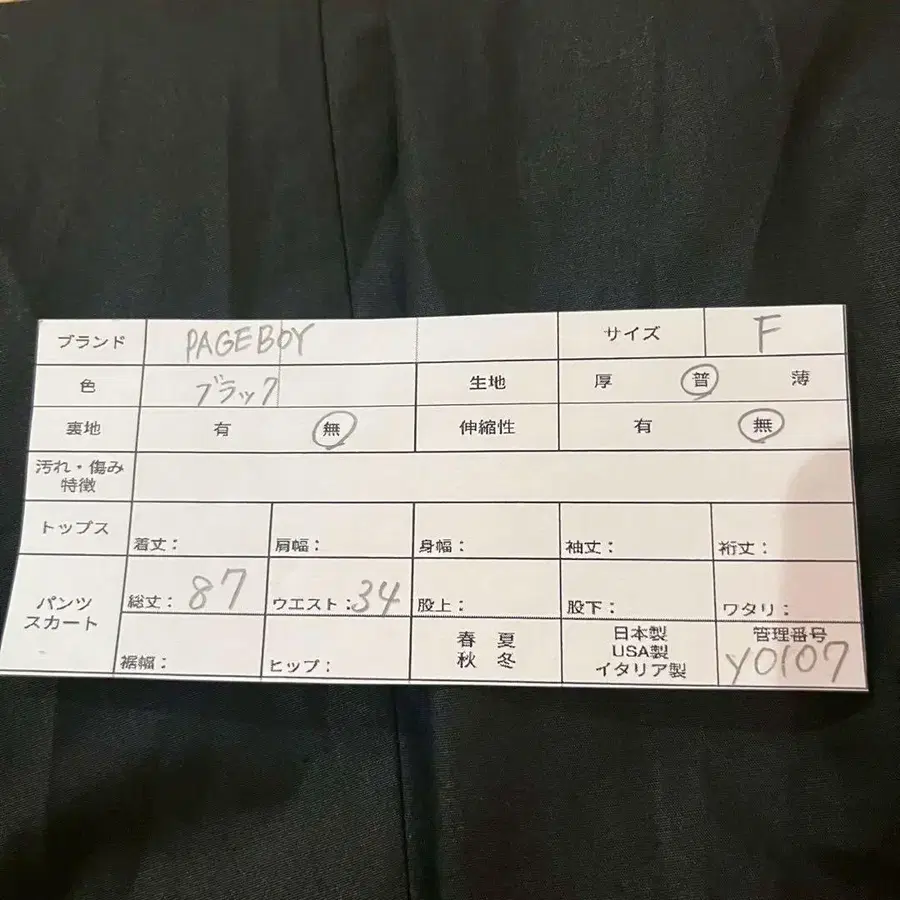 ブランド PAGEBOY サイズ F
色 ブラック 生地 厚 普 薄
裏地 有 無 伸縮性 有 無
汚れ・傷み
特徴
トップス 着丈: 肩幅: 身幅: 袖丈: 裄丈:
パンツ
スカート
総丈: 87 ウエスト: 34 股上: 股下: ワタリ:
裾幅: ヒップ:
春 夏
秋 冬
日本製
USA製
イタリア製
管理番号
Y0107